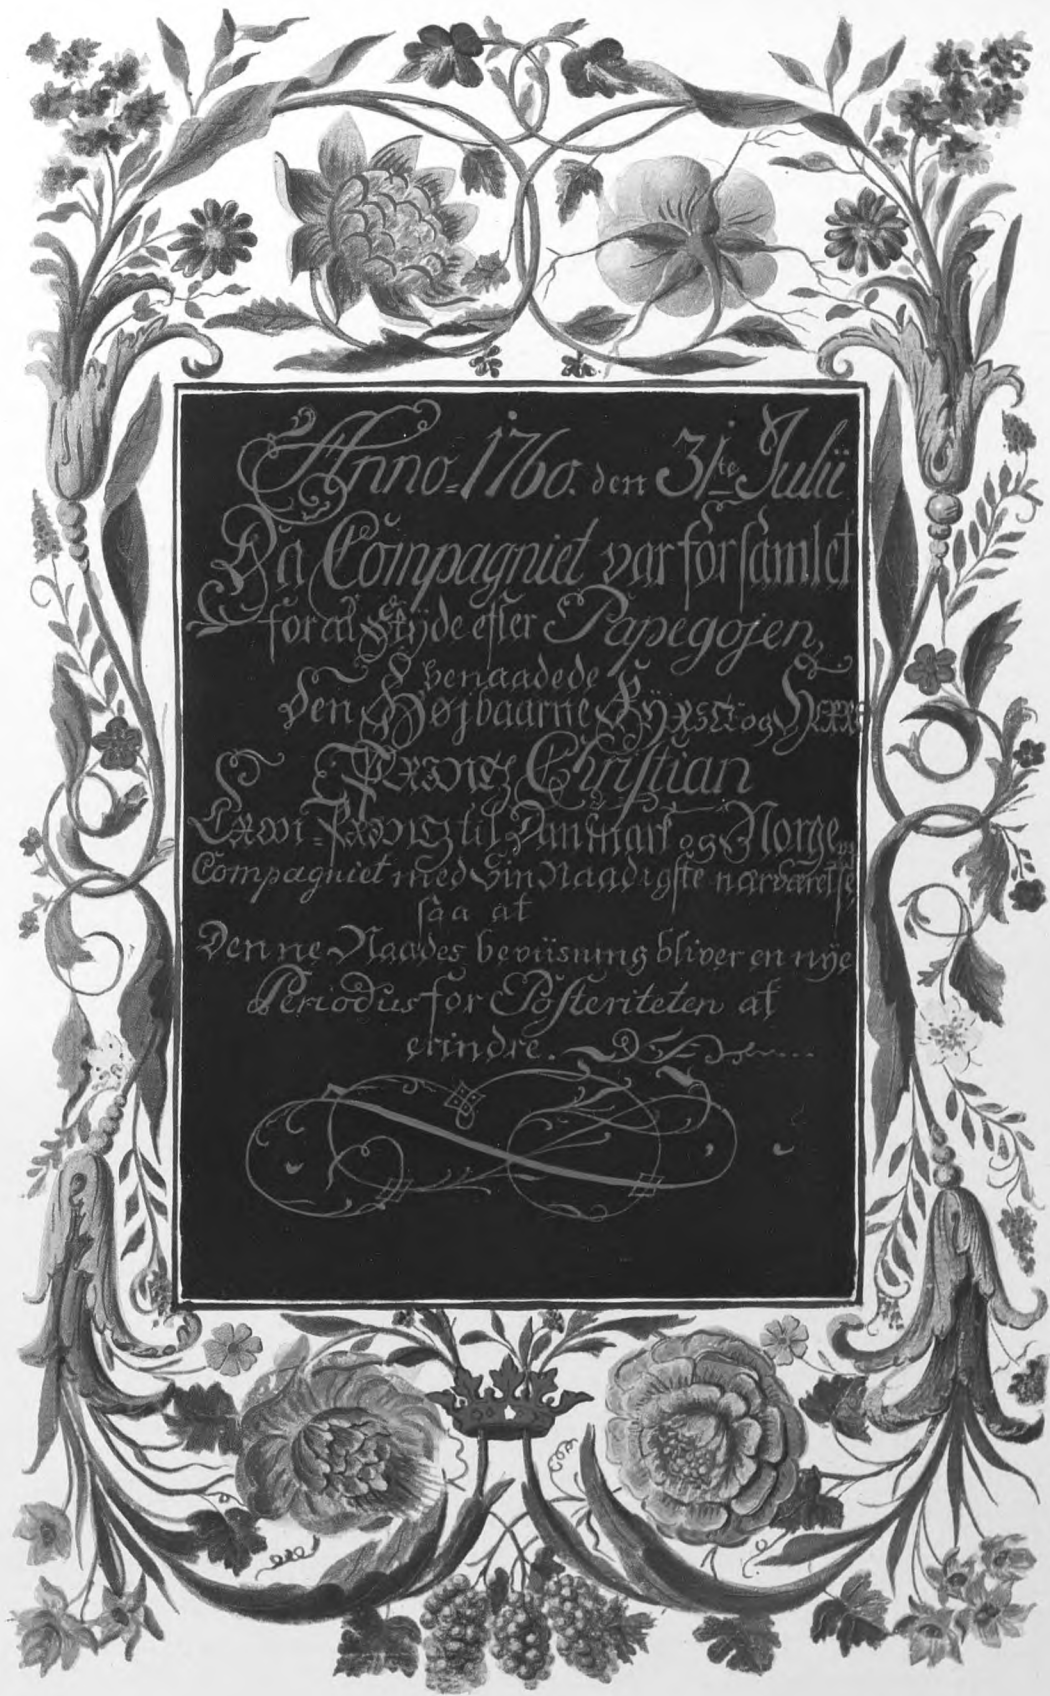 Anno 1760. den 31te Julii
Da Compagniet var forsamlet
for at skyde efter Papegojen
benaadede
Den Højbaarne Fyrste og Herre
Printz Christian
Cron-Printz til Danmark og Norge
Compagniet med Sin Naadigste nærværelse
saa at
Denne Naades beviisning bliver en nye
Periodus for Posteriteten at
erindre.